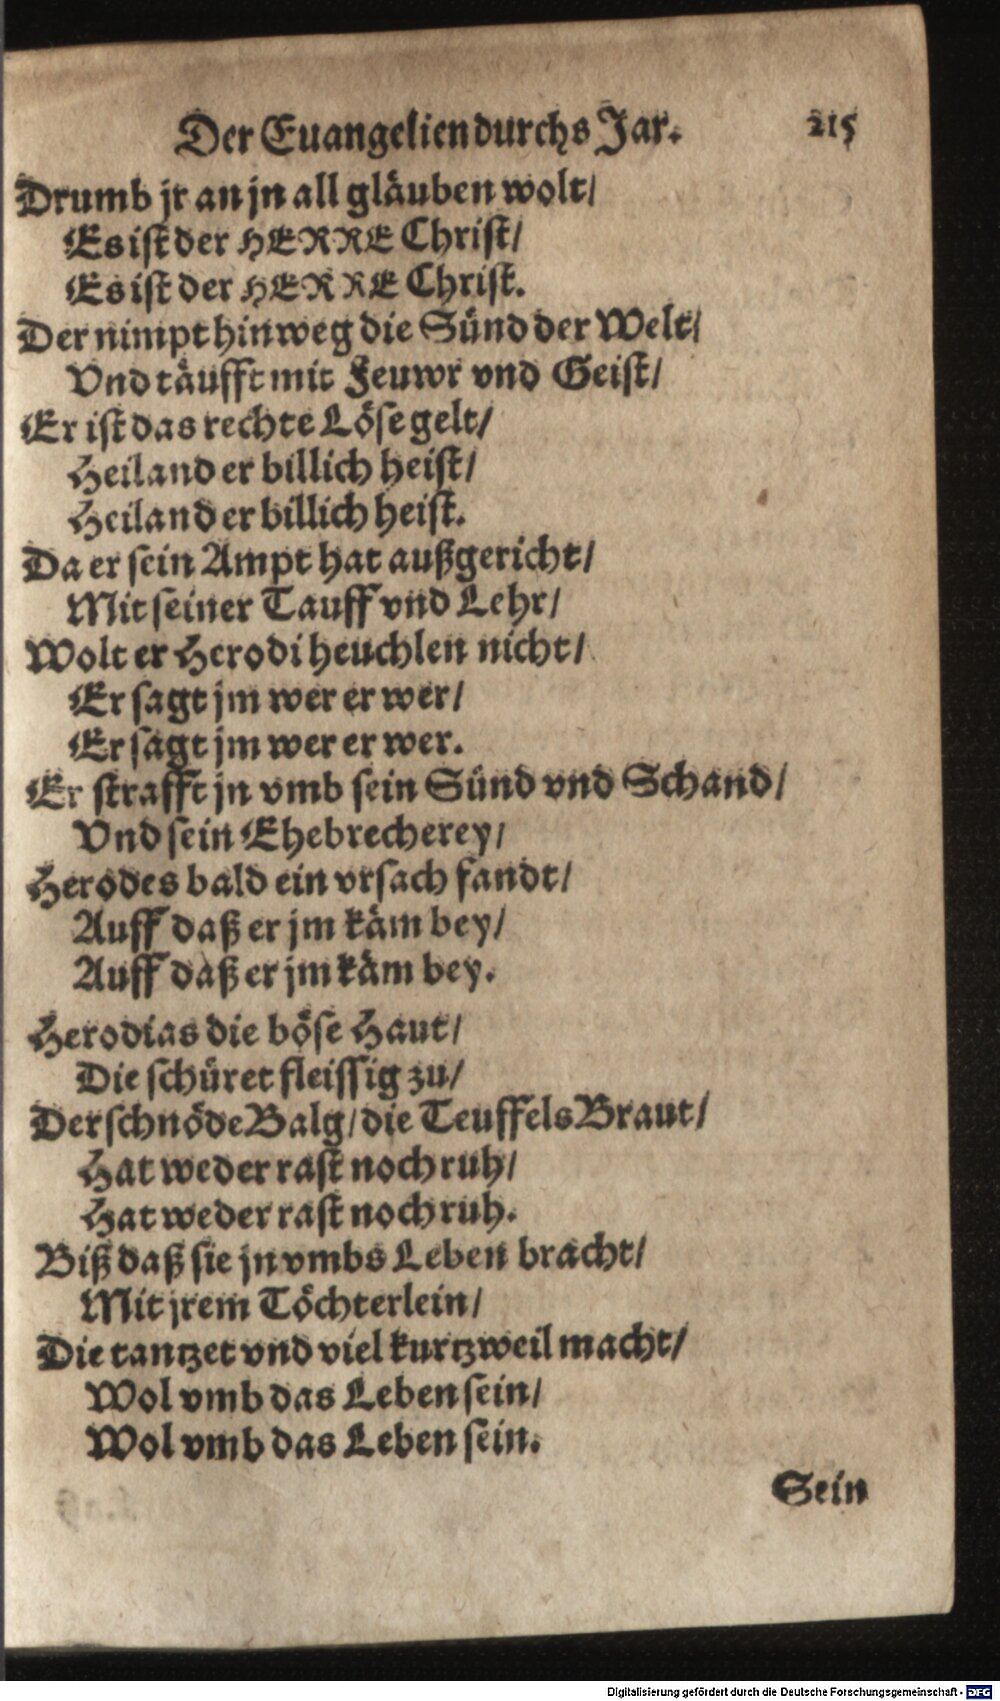 Der Euangelien durchs Jar. 215
Drumb jr an jn all gläuben wolt/
Es ist der HERRE Christ/
Es ist der HERRE Christ.
Der nimpt hinweg die Sünd der Welt/
Vnd täufft mit Feuwr vnd Geist/
Er ist das rechte Lösegelt/
Heiland er billich heist/
Heiland er billich heist.
Da er sein Ampt hat außgericht/
Mit seiner Tauff vnd Lehr/
Wolt er Herodi heuchlen nicht/
Er sagt jm wer er wer/
Er sagt jm wer er wer.
Er strafft jn vmb sein Sünd vnd Schand/
Vnd sein Ehebrecherey/
Herodes bald ein vrsach fandt/
Auff daß er jm käm bey/
Auff daß er jm käm bey.
Herodias die böse Haut/
Die schüret fleissig zu/
Der schnöde Balg/ die Teuffels Braut/
Hat weder rast noch ruh/
Hat weder rast noch ruh.
Biß daß sie jn vmbs Leben bracht/
Mit jrem Töchterlein/
Die tantzet vnd viel kurtzweil macht/
Wol vmb das Leben sein/
Wol vmb das Leben sein.
Sein
Digitalisierung gefördert durch die Deutsche Forschungsgemeinschaft - DFG